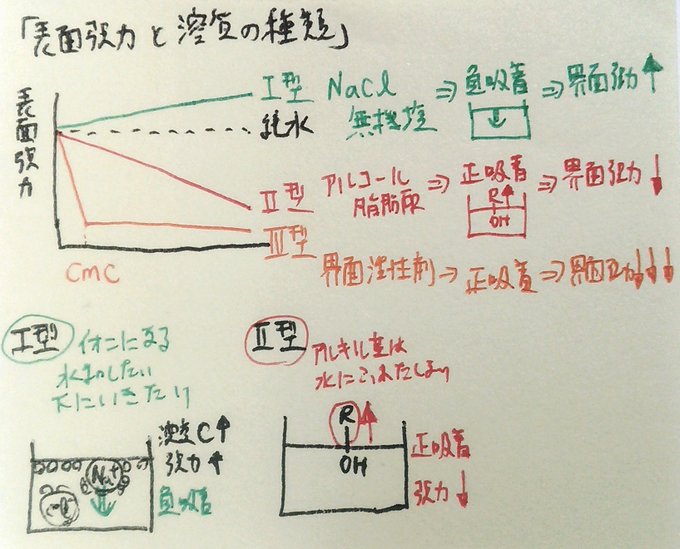 「表面張力と溶質の種類」
表面張力
I型 NaCl ⇒ 負吸着 ⇒ 界面張力↑
無機塩
↓
純水
II型 アルコール ⇒ 正吸着 ⇒ 界面張力↓
脂肪酸
R↑
OH
III型
CMC
界面活性剤 → 正吸着 → 界面張力↓↓↓
I型 イオンになる
水和したい
下にいきたい
濃度C↑
張力↑
負吸着
Na+
Cl-
II型
アルキル基は
R↑
OH
正吸着
張力↓